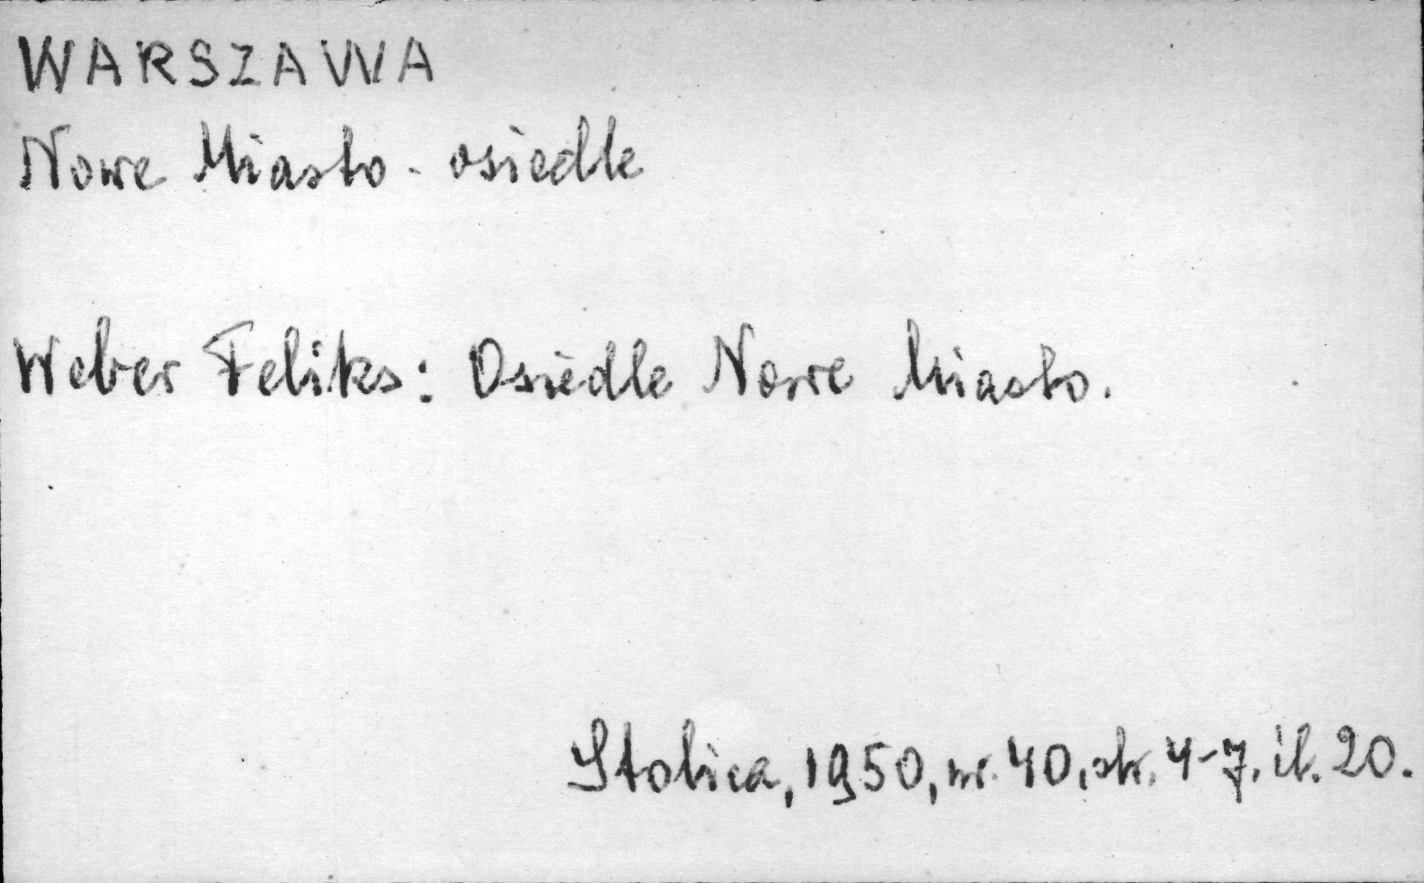 WARSZAWA
Nowe Miasto - osiedle
Weber Feliks: Osiedle Nowe Miasto.
Stolica, 1950, nr. 40, str. 4-7, il. 20.